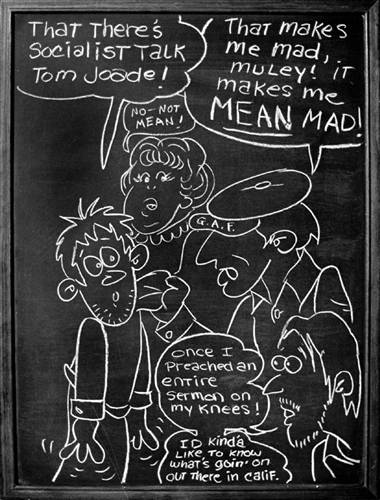 That There's
Socialist Talk
Tom Joade!
That makes
me mad,
muley! it
makes me
MEAN MAD!
NO-NOT
MEAN!
G.A.F.
once I
preached an
entire
sermon on
my knees!
I'D kinda
Like to know
what's goin' on
out there in calif.